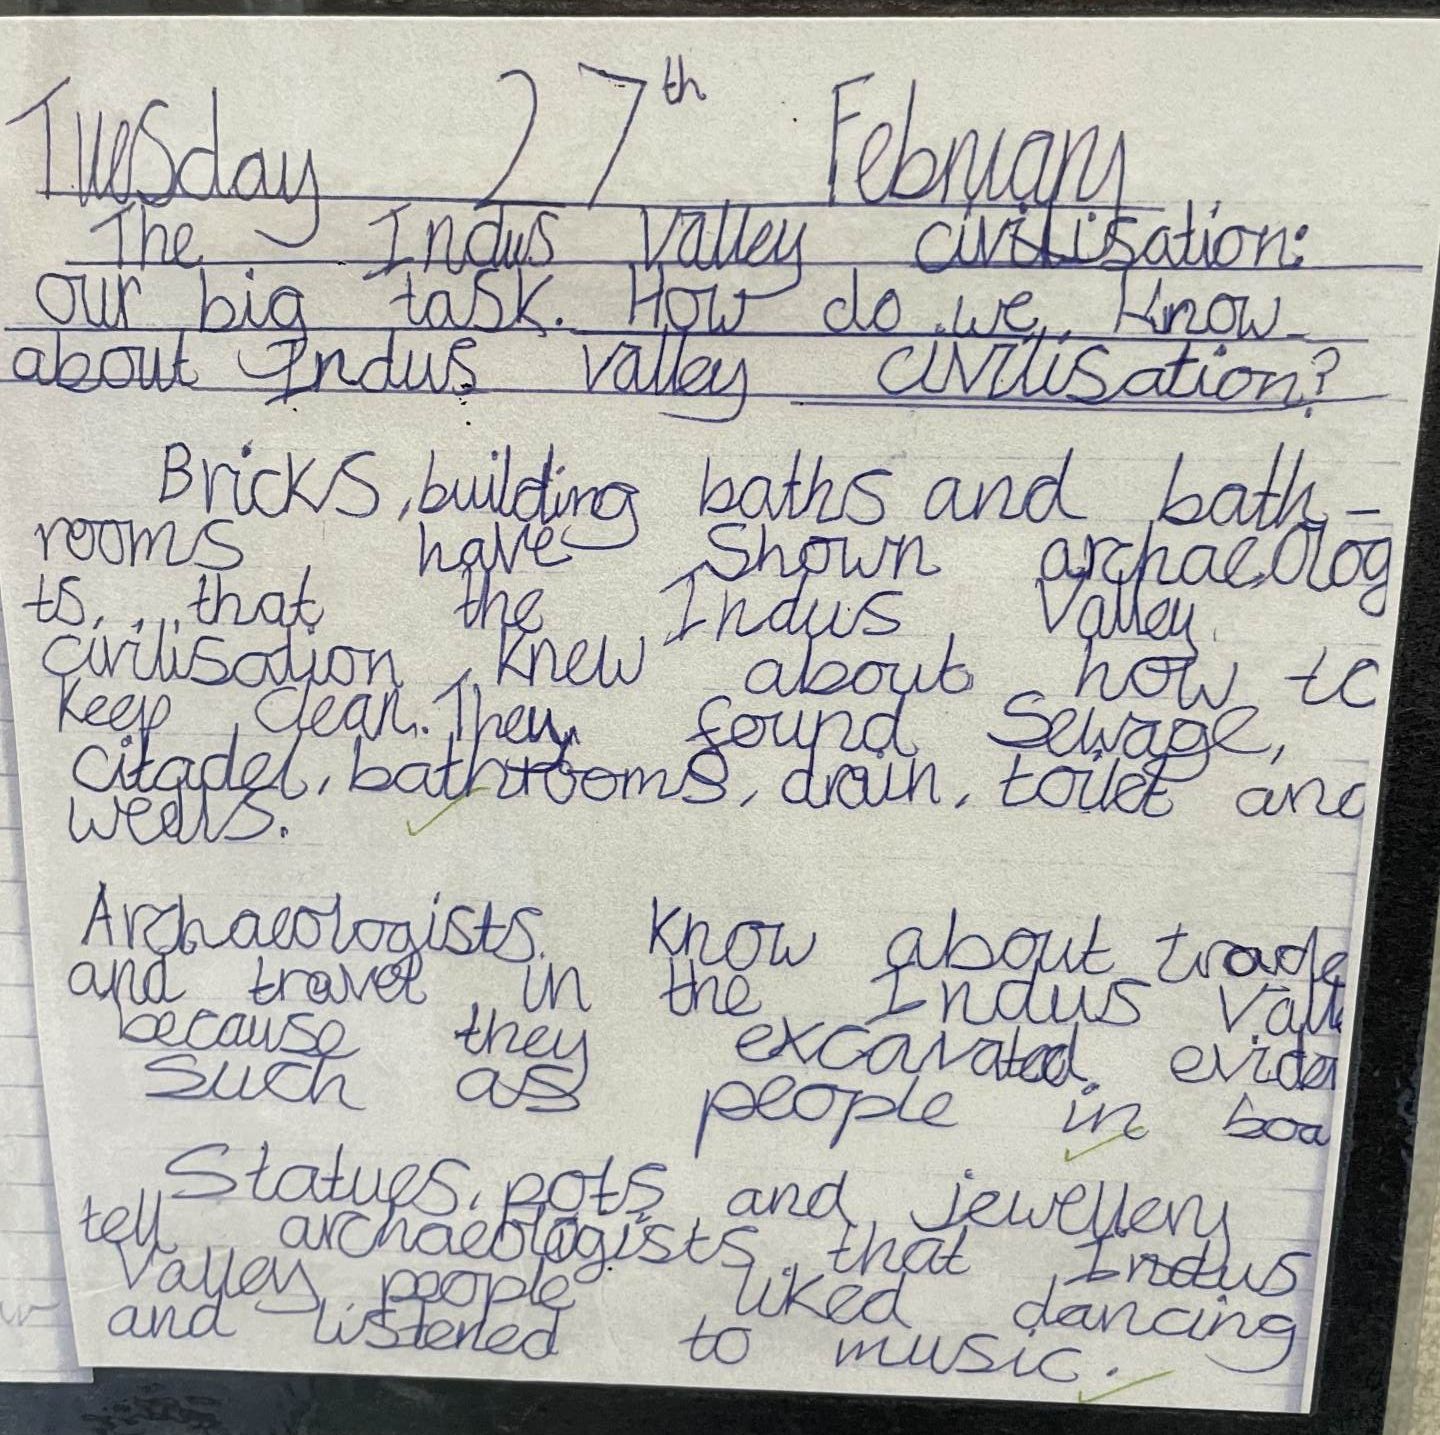 Tuesday 27th February
The Indus Valley civilisation:
our big task. How do we know
about Indus valley civilisation?
Bricks, building baths and bath-
rooms have shown archaeolog
ts that the Indus Valley
civilisation knew about how to
keep clean. They found Sewage,
citadel, bathrooms, drain, toilet and
wells.
Archaeologists know about trade
and travel in the Indus Vall
because they excavated eviden
such as people in boa
Statues, pots and jewellery
tell archaeologists that Indus
Valley people liked dancing
and listened to music.